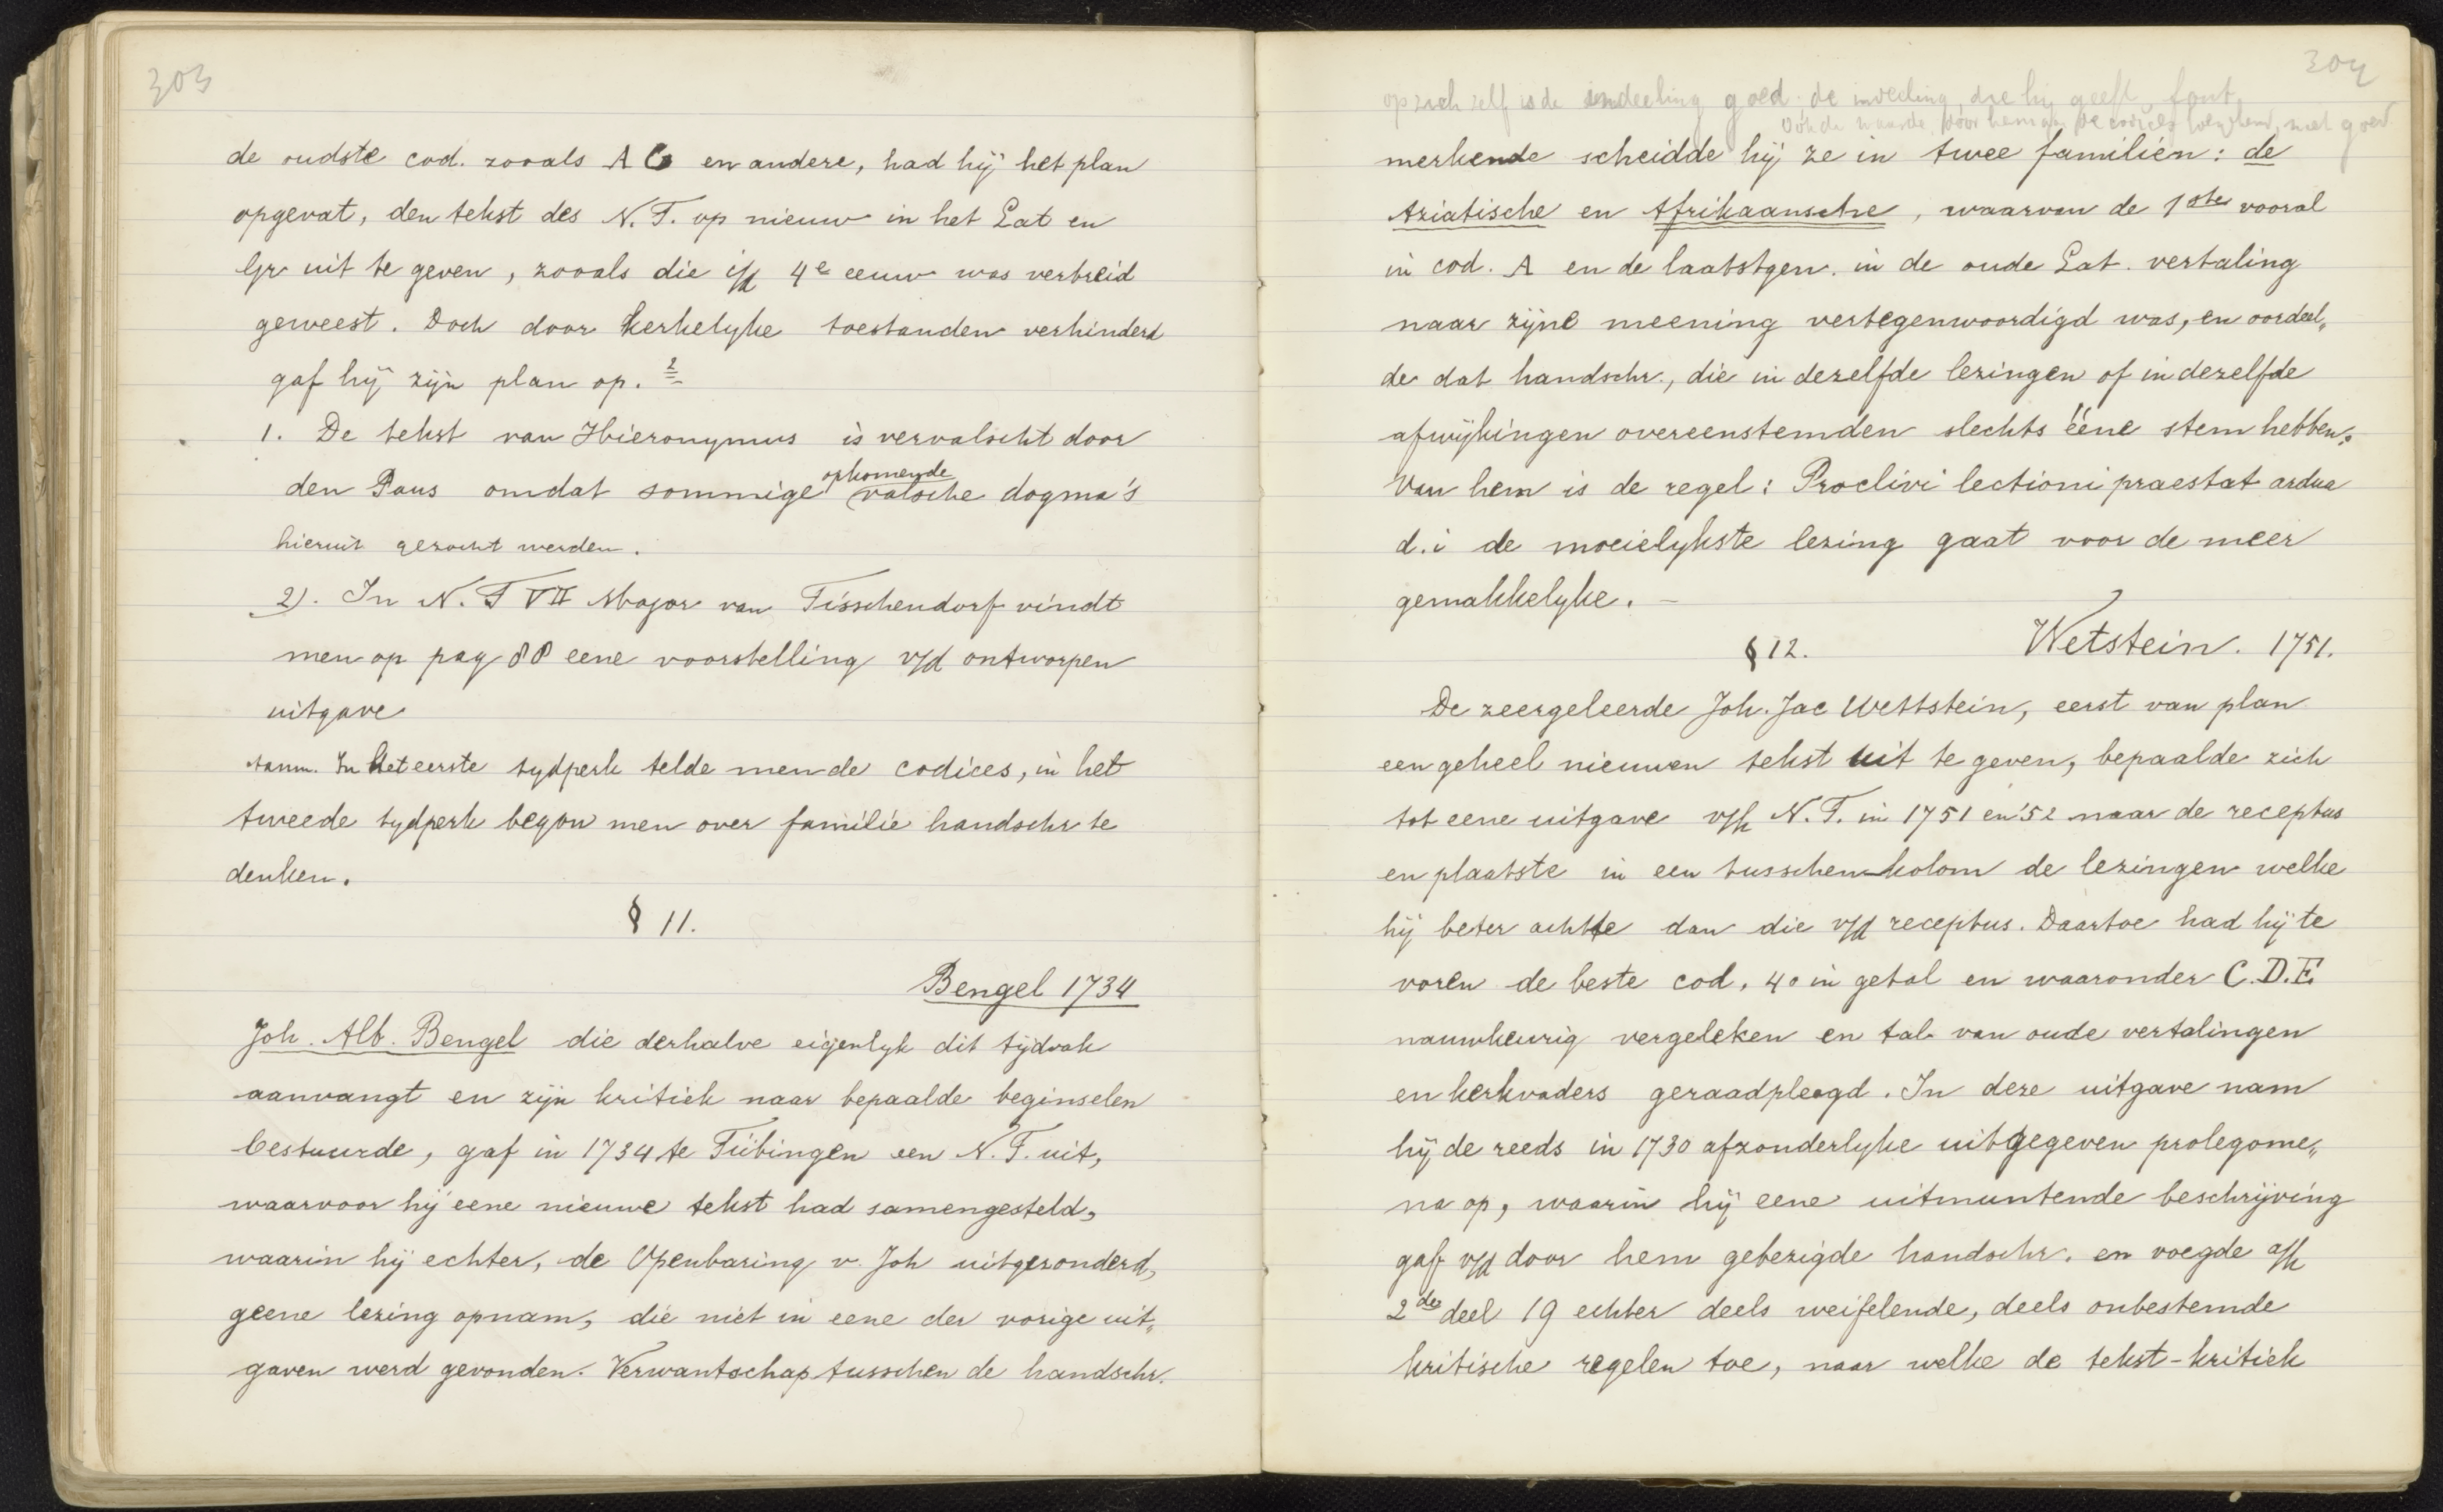 303
de oudste cod. zooals A C en andere, had hij het plan
opgevat, den tekst des N. T. op nieuw in het Lat en
Gr uit te geven, zooals die i/d 4e eeuw was verbreid
geweest. Doch door kerkelyke toestanden verhinderd
gaf hij zijn plan op. 2
1. De tekst van Hieronymus is vervalscht door
opkomende
den Paus omdat sommige valsche dogma's
hieruit gezocht werden.
2). In N. T VII Major van Tisschendorf vindt
men op pag 88 eene voorstelling v/d ontworpen
uitgave
Aanm. In het eerste tydperk telde men de codices, in het
tweede tydperk begon men over familie handschr te
denken.
§ 11.
Bengel 1734
Joh. Alb. Bengel die derhalve eigenlyk dit tijdvak
aanvangt en zijn kritiek naar bepaalde beginselen
bestuurde, gaf in 1734 te Tübingen een N. T. uit,
waarvoor hij eene nieuwe tekst had samengesteld,
waarin hij echter, de Openbaring v. Joh uitgezonderd,
geene lezing opnam, die niet in eene der vorige uit„
gaven werd gevonden. Verwantschap tusschen de handschr.
304
op zich zelf is de indeeling goed de indeeling, die hij geeft, fout
Ook de waarde door hem aan de codices toegekend, niet goed
merkende scheidde hij ze in twee familiën: de
Aziatische en Afrikaansche, waarvan de 1ste vooral
in cod. A en de laatstgen. in de oude Lat. vertaling
naar zijne meening vertegenwoordigd was, en oordeel„
de dat handschr., die in dezelfde lezingen of in dezelfde
afwijkingen overeenstemden slechts ééne stem hebben.
Van hem is de regel: Proclivi lectioni praestat ardua
d.i de moeielykste lezing gaat voor de meer
gemakkelyke. –
§ 12. Wetstein. 1751.
De zeergeleerde Joh. Jac Wettstein, eerst van plan
een geheel nieuwen tekst uit te geven, bepaalde zich
tot eene uitgave v/h N. T. in 1751 en '52 naar de receptus
en plaatste in een tusschen-kolom de lezingen welke
hij beter achtte dan die v/d receptus. Daartoe had hij te
voren de beste cod, 40 in getal en waaronder C. D. E.
nauwkeurig vergeleken en tal van oude vertalingen
en kerkvaders geraadpleegd. In deze uitgave nam
hij de reeds in 1730 afzonderlyke uitgegeven prolegome„
na op, waarin hij eene uitmuntende beschrijving
gaf v/d door hem gebezigde handschr. en voegde a/h
2de deel 19 echter deels weifelende, deels onbestemde
kritische regelen toe, naar welke de tekst-kritiek